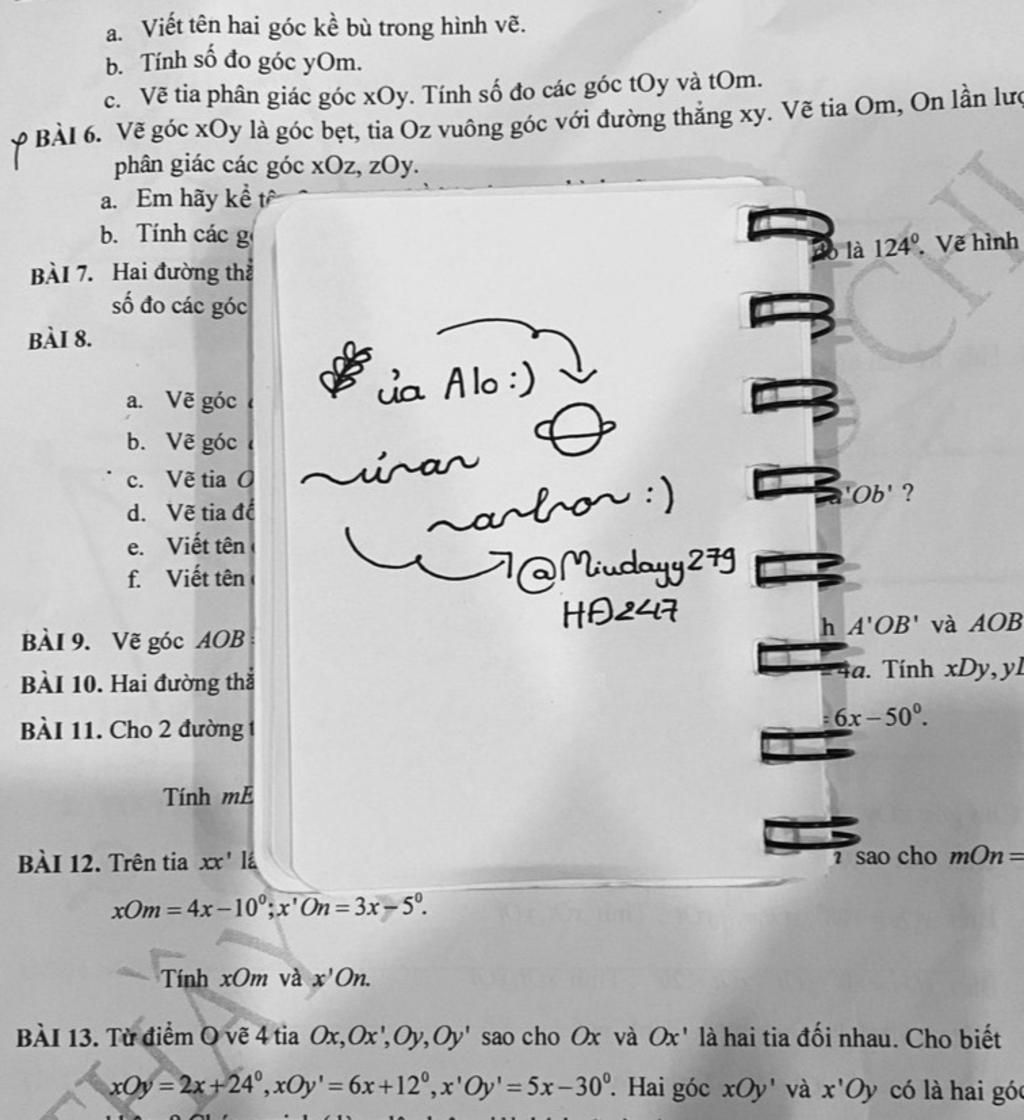 a. Viết tên hai góc kề bù trong hình vẽ.
b. Tính số đo góc yOm.
c. Vẽ tia phân giác góc xOy. Tính số đo các góc tOy và tOm.
BÀI 6. Vẽ góc xOy là góc bẹt, tia Oz vuông góc với đường thẳng xy. Vẽ tia Om, On lần
phân giác các góc xOz, zOy.
a. Em hãy kể
b. Tính các
là 124⁰. Vẽ hình
BÀI 7. Hai đường
số đo các góc
BÀI 8.
a. Vẽ góc
b. Vẽ góc
c. Vẽ tia
d. Vẽ tia
'Ob' ?
e. Viết tên
f. Viết tên
ủa Alo :)
:)
@Miudayy279
HĐ247
BÀI 9. Vẽ góc AOB
A'OB' và AOB
BÀI 10. Hai đường
4a. Tính xDy,
BÀI 11. Cho 2 đường
= 6x − 50⁰.
Tính
BÀI 12. Trên tia xx'
sao cho mOn =
xOm = 4x − 10⁰; x'On = 3x − 5⁰.
Tính xOm và x'On.
BÀI 13. Từ điểm O vẽ 4 tia Ox, Ox', Oy, Oy' sao cho Ox và Ox' là hai tia đối nhau. Cho biết
xOy = 2x + 24⁰, xOy' = 6x + 12⁰, x'Oy' = 5x − 30⁰. Hai góc xOy' và x'Oy có là hai góc